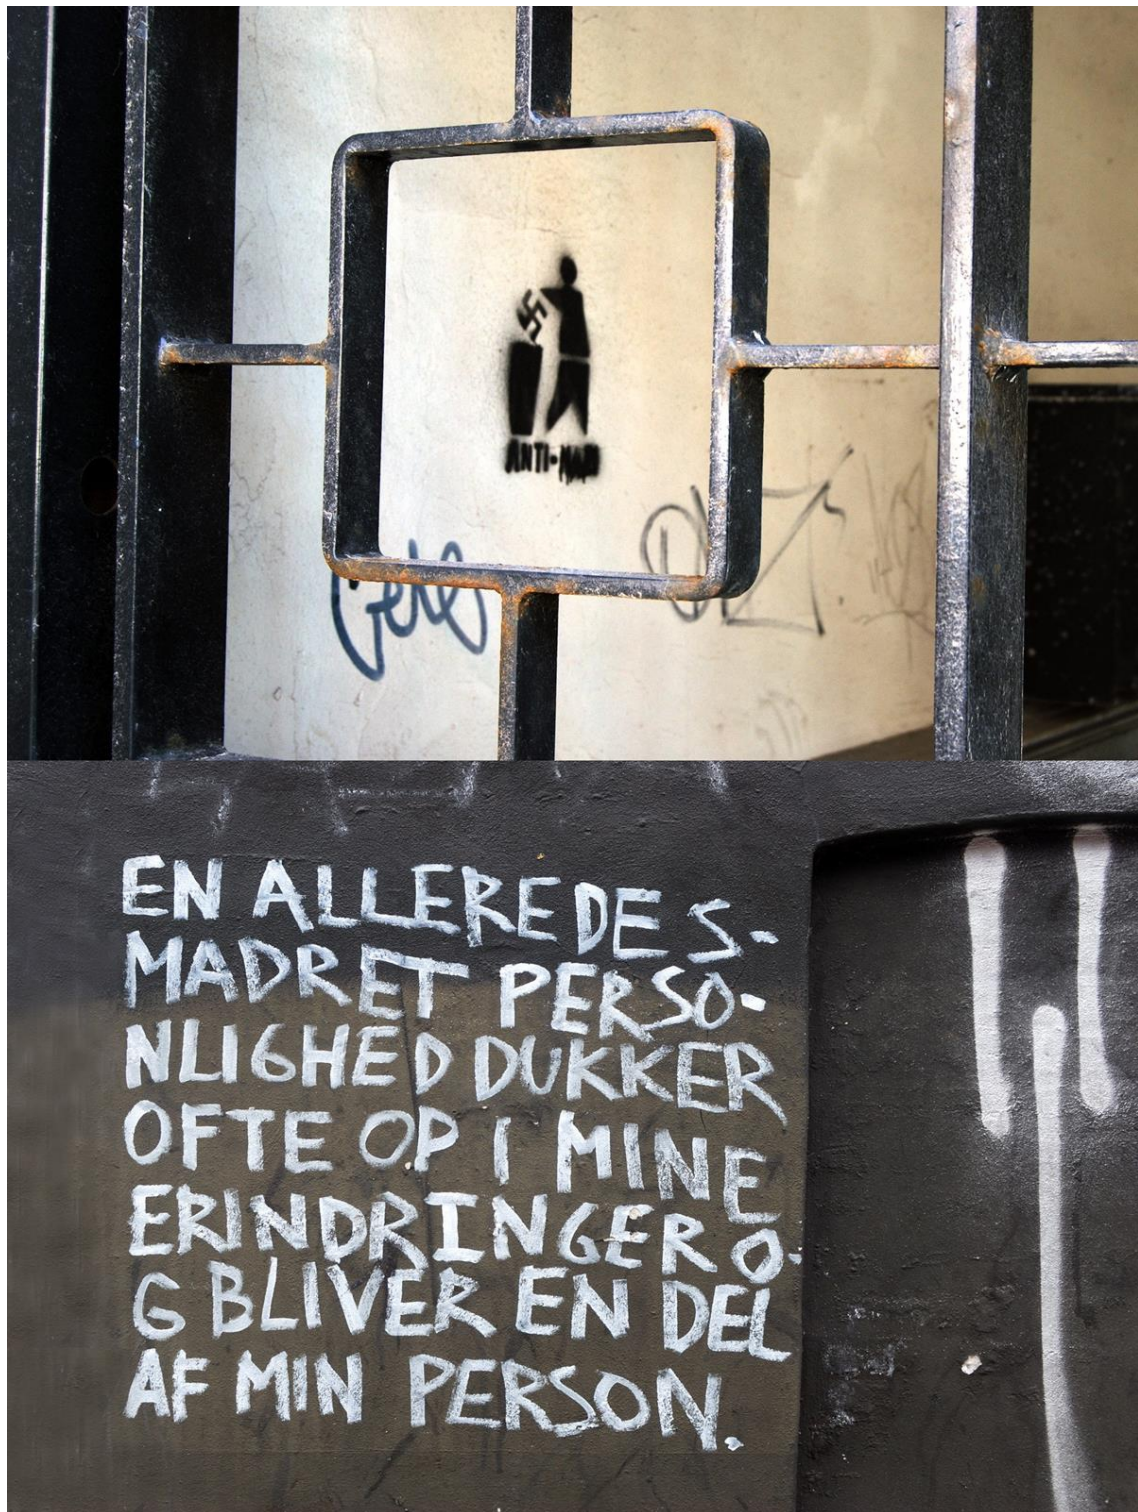 ANTI-NAZI
EN ALLEREDE S-
MADRET PERSO-
NLIGHED DUKKER
OFTE OP I MINE
ERINDRINGER O-
G BLIVER EN DEL
AF MIN PERSON.